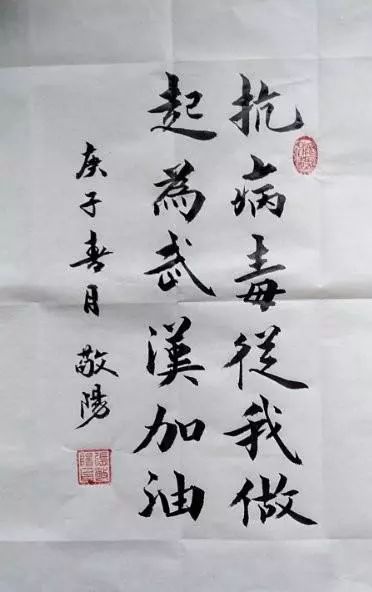 抗病毒從我做
起為武漢加油
庚子春月 敬陽